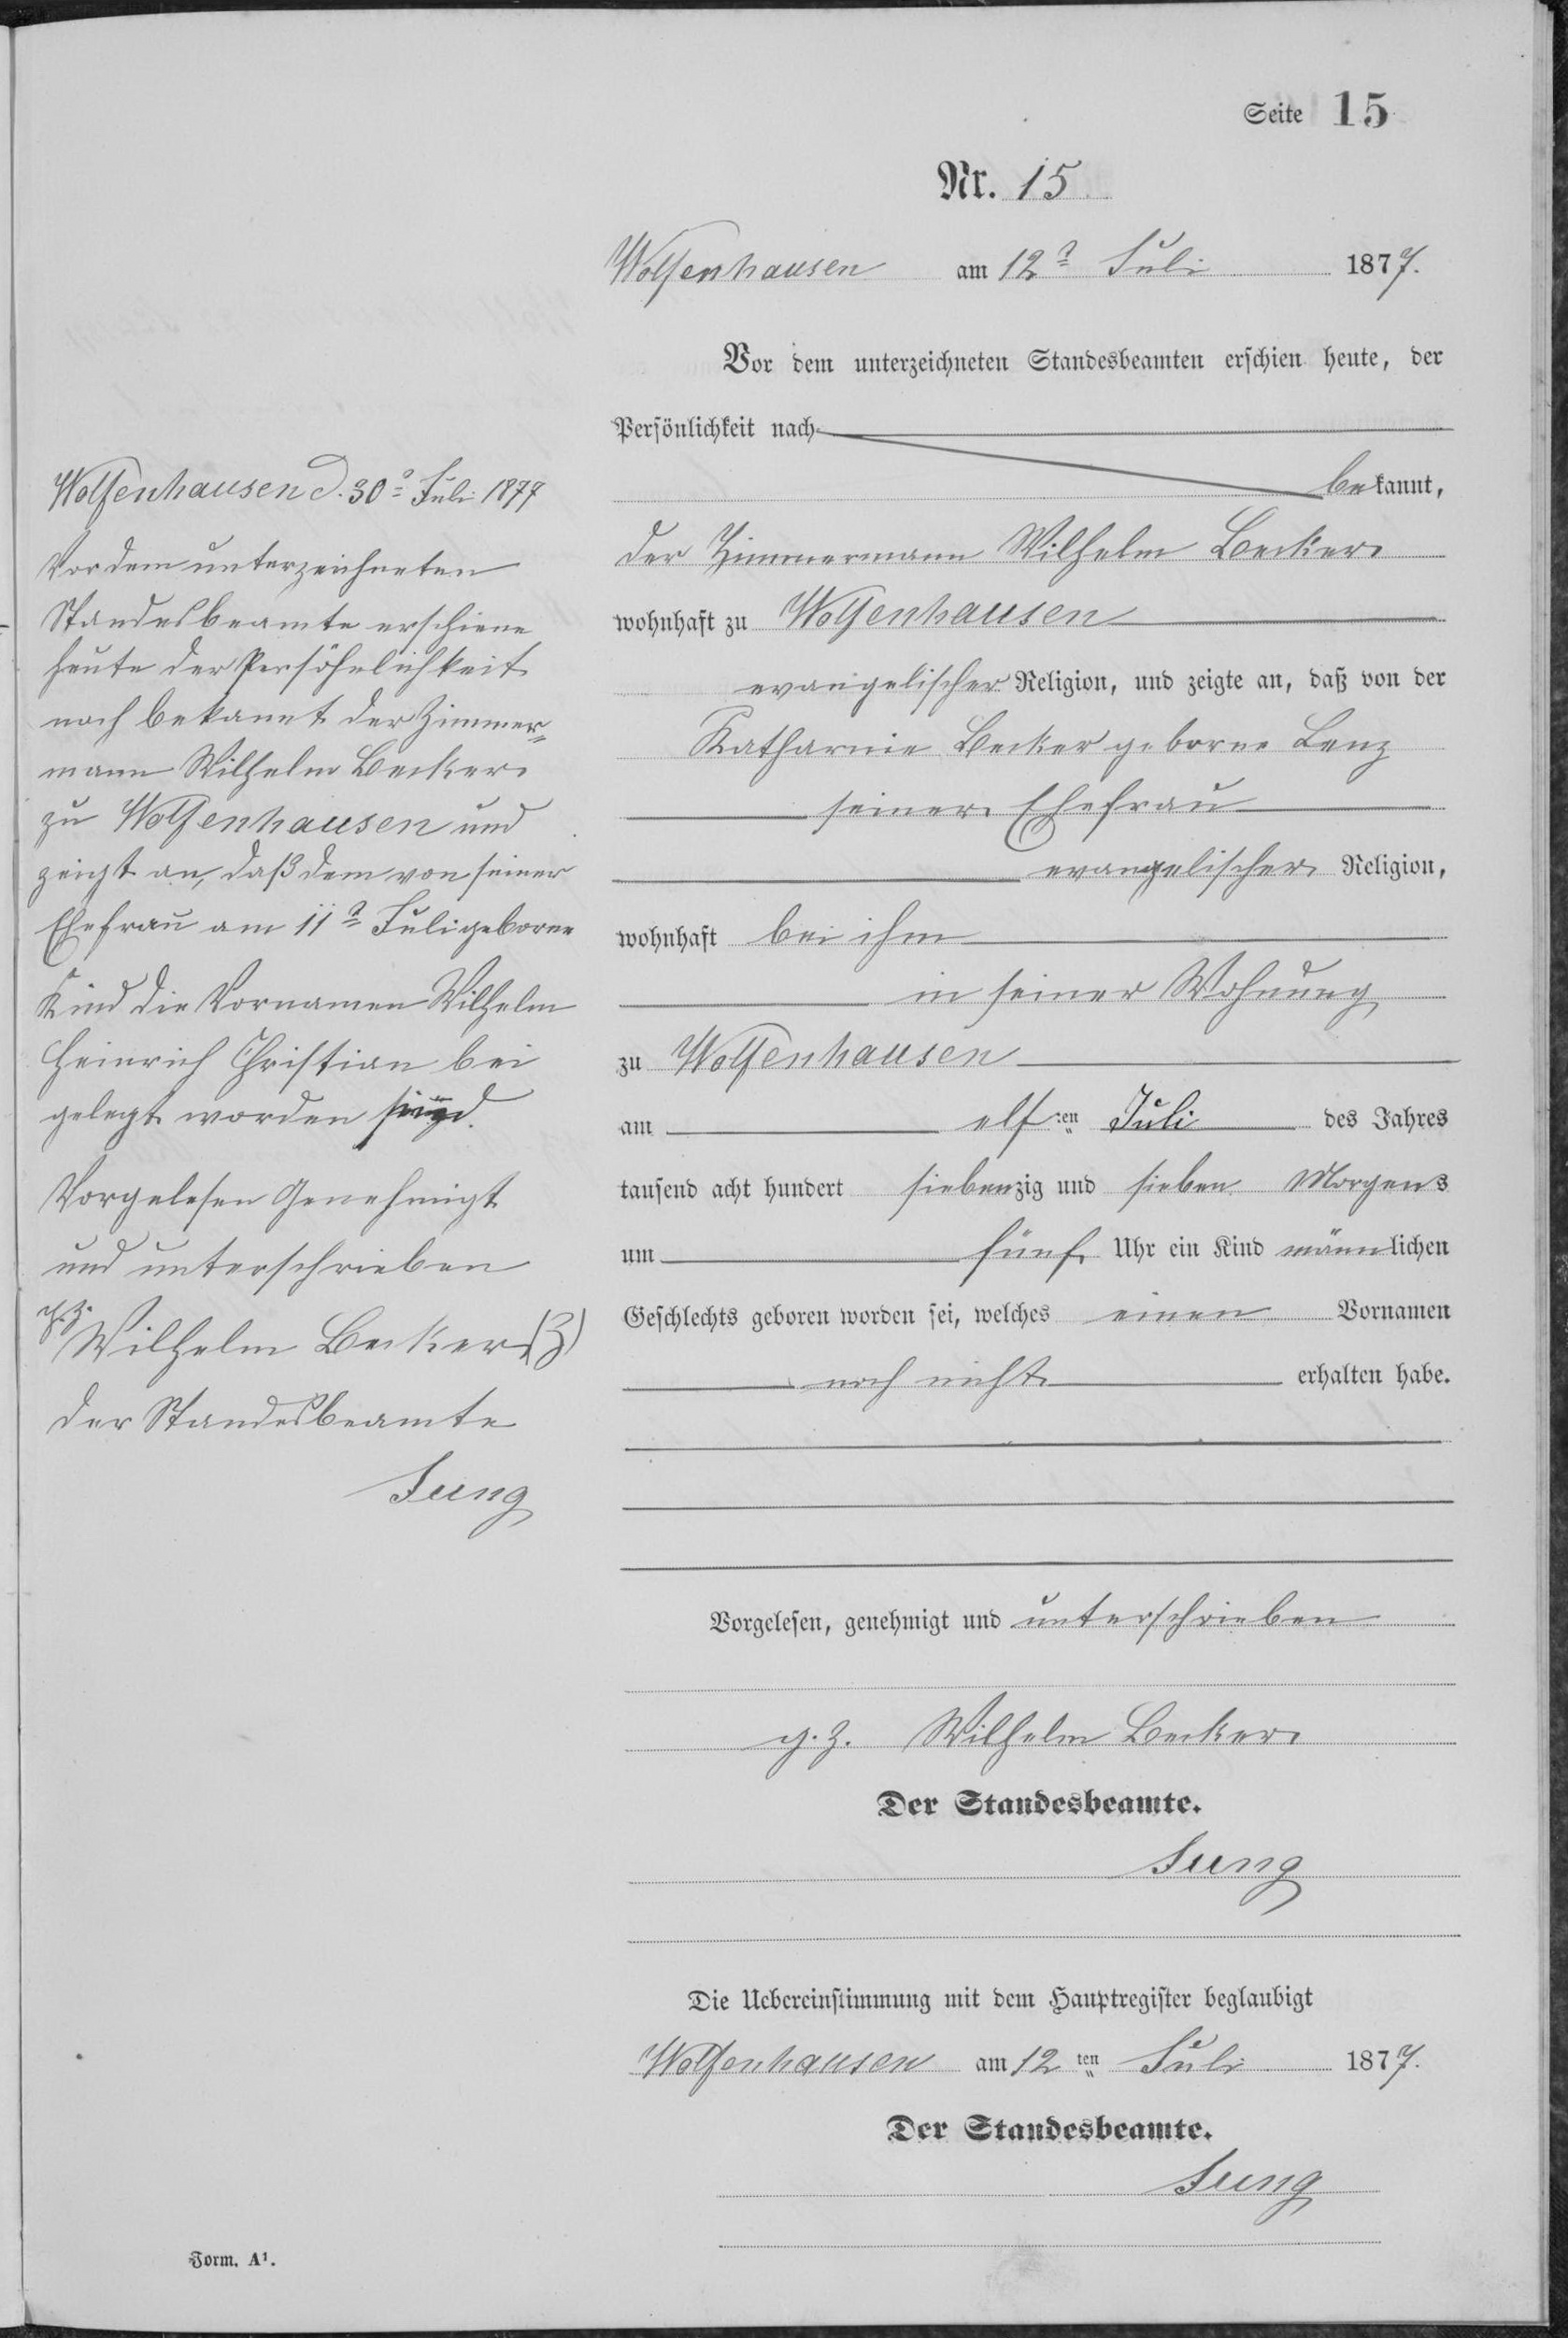 Seite 15
Nr. 15
Wolfenhausen am 12t Juli 1877.
Vor dem unterzeichneten Standesbeamten erschien heute, der
Persönlichkeit nach
bekannt,
der Zimmermann Wilhelm Becker
wohnhaft zu Wolfenhausen
evangelischer Religion, und zeigte an, daß von der
Katharine Becker geborne Lenz
seiner Ehefrau
evangelischer Religion,
wohnhaft bei ihm
in seiner Wohnung
zu Wolfenhausen
am elften Juli des Jahres
tausend acht hundert siebenzig und sieben Morgens
um fünf Uhr ein Kind männlichen
Geschlechts geboren worden sei, welches einen Vornamen
noch nicht erhalten habe.
Vorgelesen, genehmigt und unterschrieben
g. z. Wilhelm Becker
Der Standesbeamte.
Jung
Die Uebereinstimmung mit dem Hauptregister beglaubigt
Wolfenhausen am 12ten Juli 1877.
Der Standesbeamte.
Jung
Wolfenhausen d. 30t Juli 1877
Vor dem unterzeichneten
Standesbeamte erschiene
heute der Persöhnlichkeit
nach bekannt der Zimmer=
mann Wilhelm Becker
zu Wolfenhausen und
zeigt an, daß dem von seiner
Ehefrau am 11t Juli geborne
Kind die Vornamen Wilhelm
Heinrich Christian bei
gelegt worden sind.
Vorgelesen Genehmigt
und unterschrieben
g. z. Wilhelm Becker (3)
der Standesbeamte
Jung
Form. A¹.